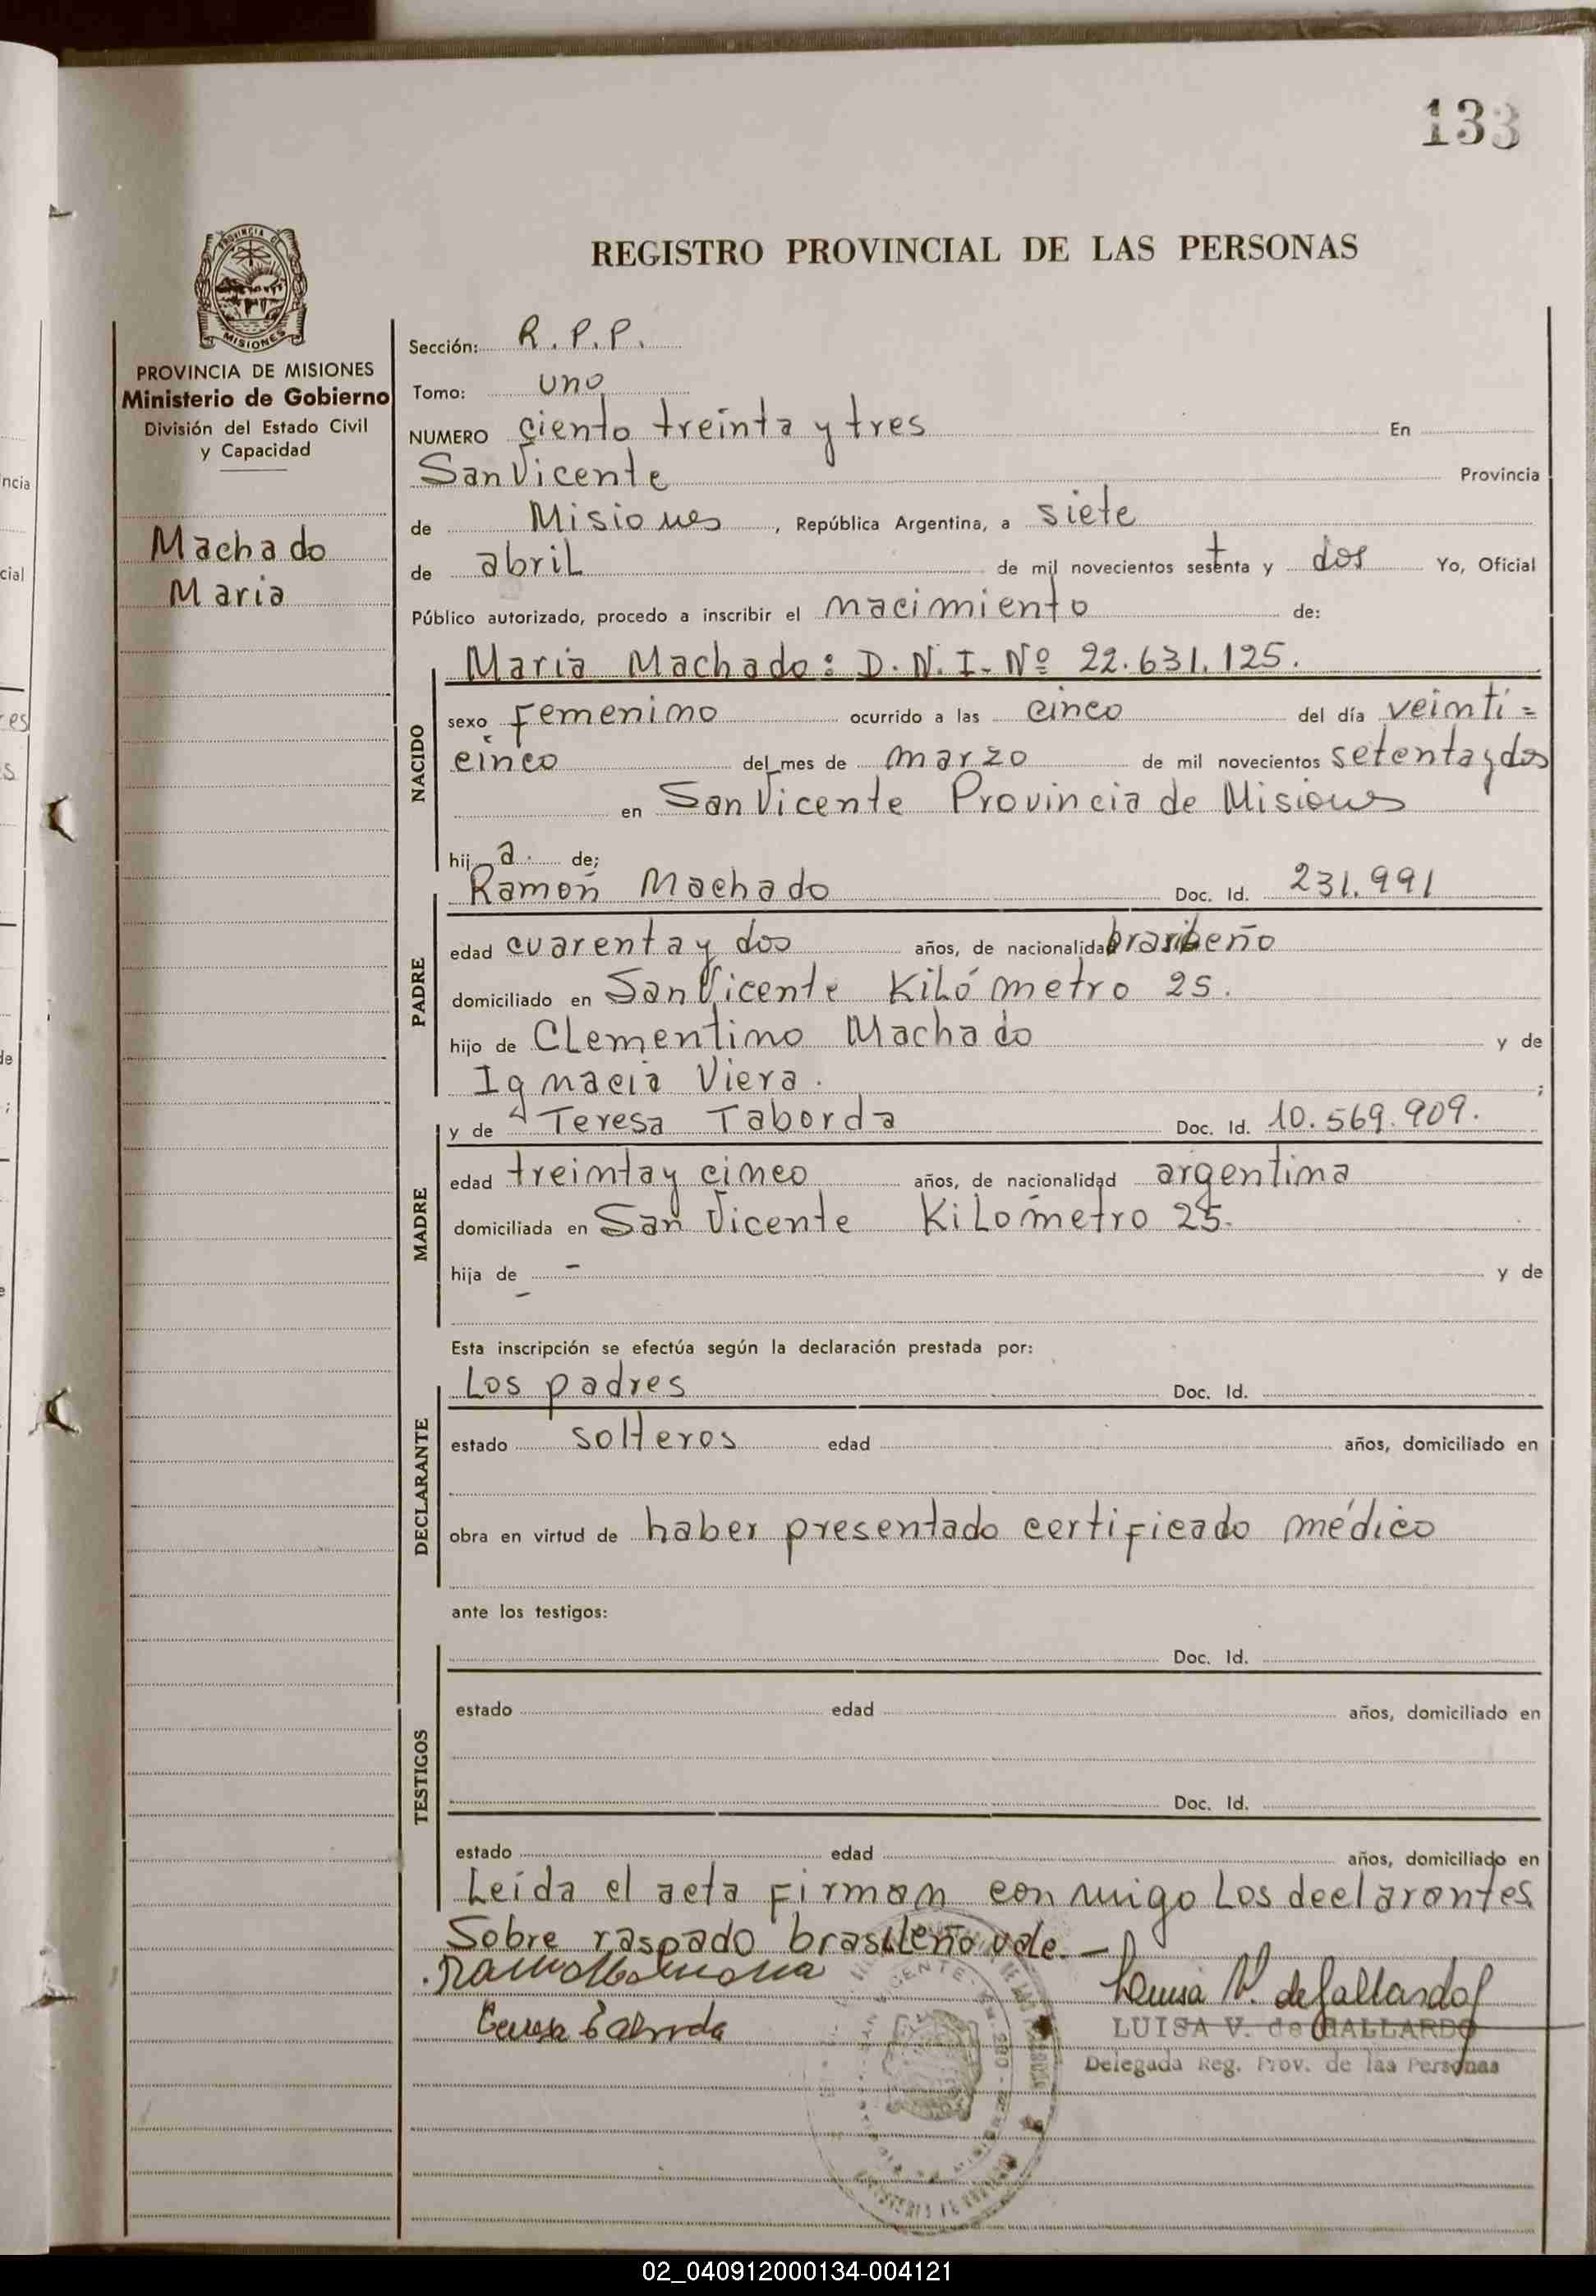 133
REGISTRO PROVINCIAL DE LAS PERSONAS
PROVINCIA DE MISIONES
Ministerio de Gobierno
División del Estado Civil
y Capacidad
Machado
Maria
Sección: R.P.P.
Tomo: uno
NUMERO ciento treinta y tres En
San Vicente Provincia
de Misiones, República Argentina, a siete
de abril de mil novecientos setenta y dos Yo, Oficial
Público autorizado, procedo a inscribir el nacimiento de:
NACIDO
Maria Machado: D.N.I. Nº 22.631.125.
sexo femenino ocurrido a las cinco del día veinti=
cinco del mes de marzo de mil novecientos setenta y dos
en San Vicente Provincia de Misiones
hija. de;
PADRE
Ramón Machado Doc. Id. 231.991
edad cuarenta y dos años, de nacionalidad brasileño
domiciliado en San Vicente Kilómetro 25.
hijo de Clementino Machado y de
Ignacia Viera. ;
MADRE
y de Teresa Taborda Doc. Id. 10.569.909.
edad treinta y cinco años, de nacionalidad argentina
domiciliada en San Vicente Kilómetro 25.
hija de - y de
-
Esta inscripción se efectúa según la declaración prestada por:
DECLARANTE
Los padres Doc. Id.
estado solteros edad años, domiciliado en
obra en virtud de haber presentado certificado médico
ante los testigos:
TESTIGOS
Doc. Id.
estado edad años, domiciliado en
Doc. Id.
estado edad años, domiciliado en
Leída el acta firman conmigo los declarantes
Sobre raspado brasileño vale.-
Teresa Taborda
Luisa V. de Gallardo
LUISA V. de GALLARDO
Delegada Reg. Prov. de las Personas
02_040912000134-004121